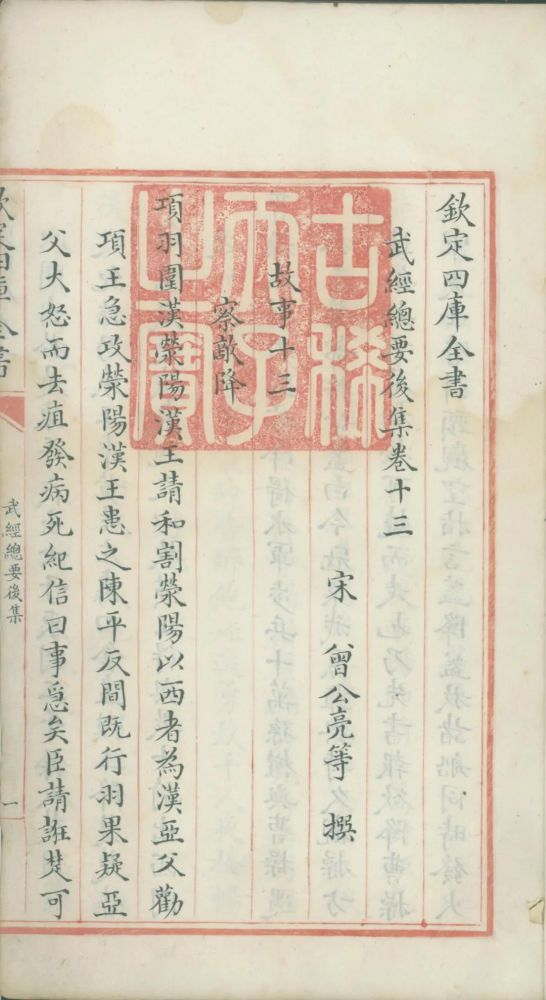 欽定四庫全書
武經總要後集卷十三
宋 曾公亮等 撰
故事十三
察敵降
項羽圍漢滎陽漢王請和割滎陽以西者為漢亞父勸
項王急攻滎陽漢王患之陳平反間既行羽果疑亞
父大怒而去疽發病死紀信曰事急矣臣請誑楚可
欽定四庫全書
武經總要後集
一
古稀天子之寶